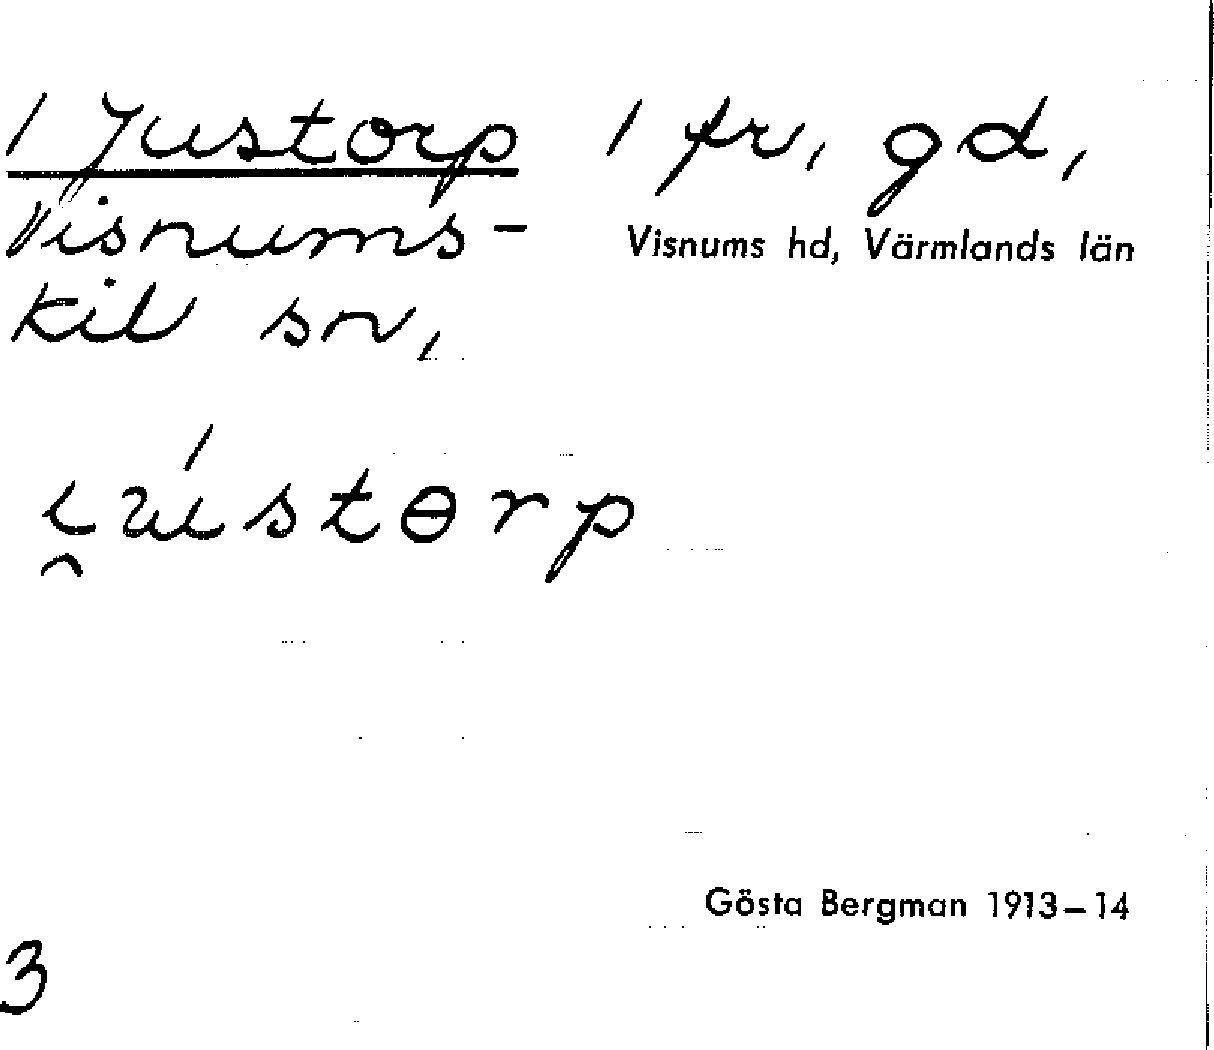 / Justorp / fr, gd,
Visnums-
kil sn,
Visnums hd, Värmlands län
Gösta Bergman 1913–14
3